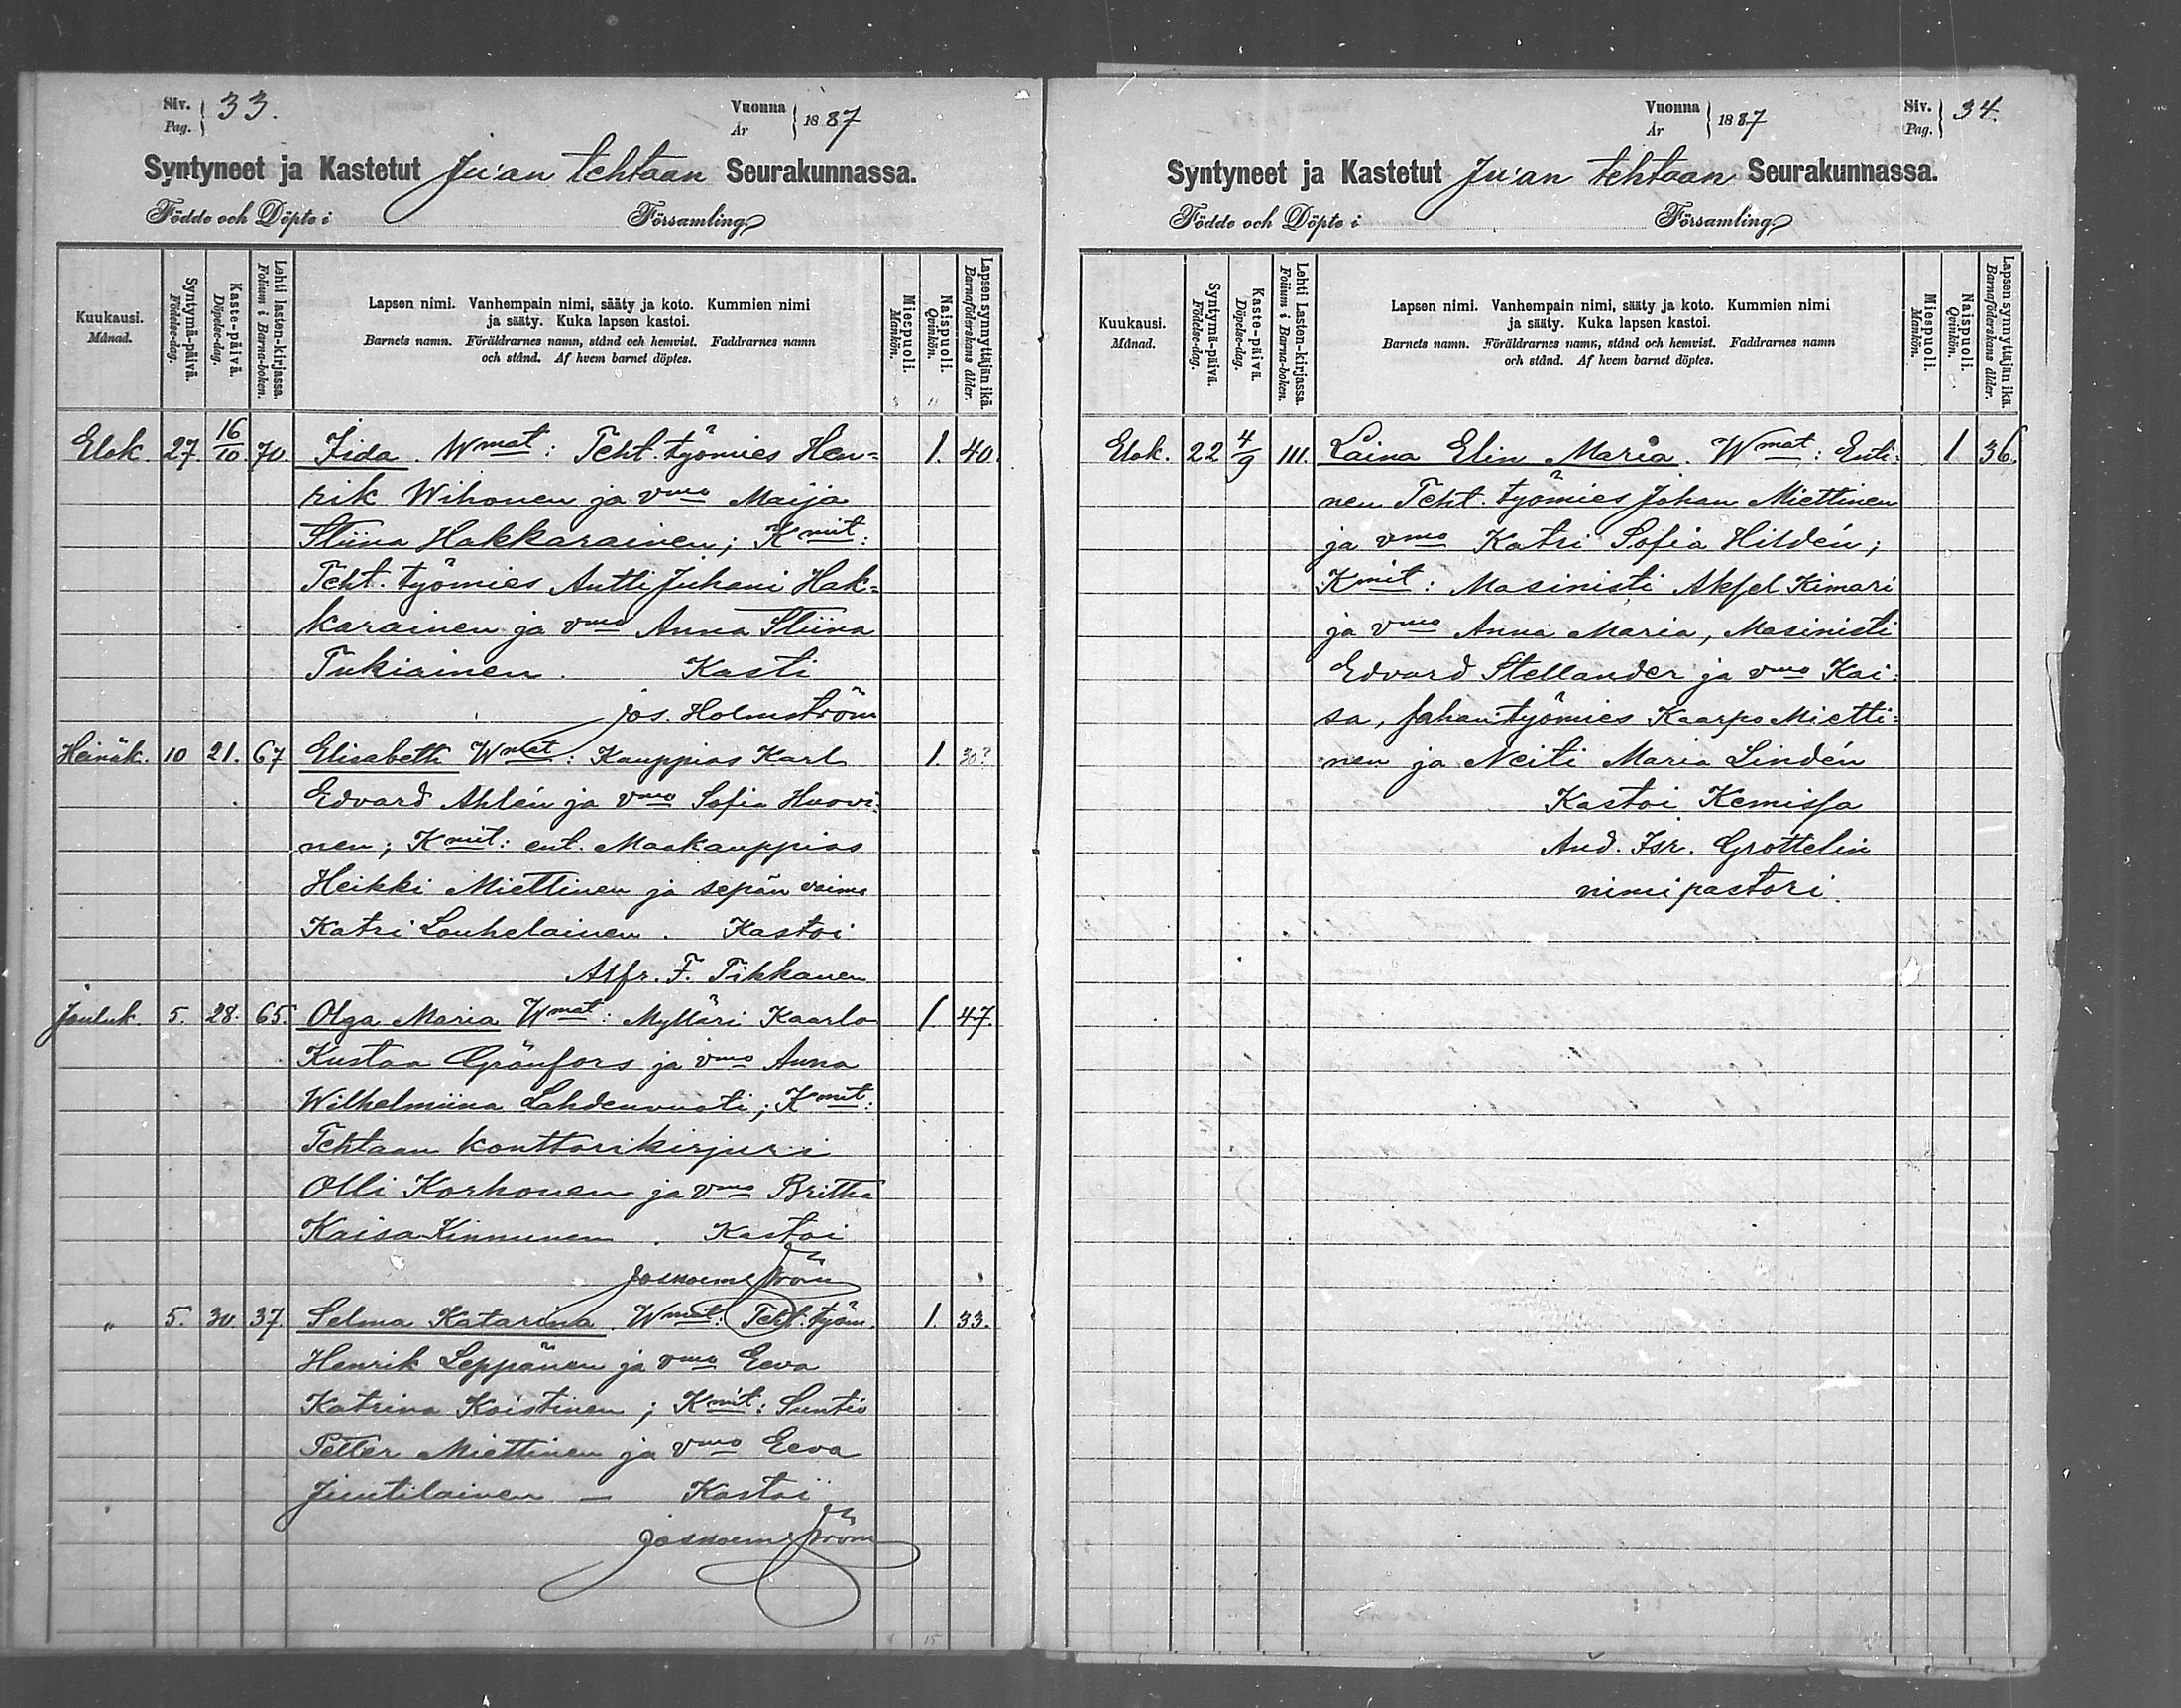 Siv. Pag. 33. Vuonna År 1887
Syntyneet ja Kastetut Ju'an tehtaan Seurakunnassa.
Födde och Döpte i Församling
Kuukausi. Månad.
Syntymä-päivä. Födelse-dag.
Kaste-päivä. Döpelse-dag.
Lehti lasten-kirjassa. Folium i Barna-boken.
Lapsen nimi. Vanhempain nimi, sääty ja koto. Kummien nimi
ja sääty. Kuka lapsen kastoi.
Barnets namn. Föräldrarnes namn, stånd och hemvist. Faddrarnes namn
och stånd. Af hvem barnet döptes.
Miespuoli. Mankön.
Naispuoli. Qvinkön.
Lapsen synnyttäjän ikä. Barnaföderskans ålder.
Elok. 27. 16/10 70. Iida. Wmat: Teht. työmies Hen= 1. 40.
rik Wihonen ja vmo Maija
Stiina Hakkarainen; Kmit:
Teht. työmies Antti Juhani Hak=
karainen ja vmo Anna Stiina
Tukiainen. Kasti
Jos. Holmström
Heinäk. 10 21. 67 Elisabetti Wmat: Kauppias Karl 1. 30?
Edvard Ahlén ja vmo Sofia Huovi=
nen; Kmit: ent. Maakauppias
Heikki Miettinen ja sepän vaimo
Katri Louhelainen. Kastoi
Alfr. F. Tikkanen
Jouluk. 5. 28. 65. Olga Maria Wmat: Mylläri Kaarlo 1 47.
Kustaa Gränfors ja vmo Anna
Wilhelmiina Lahdenvuoti; Kmit:
Tehtaan konttorikirjuri
Olli Korhonen ja vmo Britha
Kaisa Kinnunen. Kastoi
Jos Holmström
" 5. 30. 37. Selma Katarina. Wmat: Teht. työm. 1. 33.
Henrik Leppänen ja vmo Eeva
Katrina Koistinen; Kmit: Suntio
Petter Miettinen ja vmo Eeva
Juutilainen — Kastoi
Jos Holmström
Vuonna År 1887 Siv. Pag. 34.
Syntyneet ja Kastetut Ju'an tehtaan Seurakunnassa.
Födde och Döpte i Församling
Kuukausi. Månad.
Syntymä-päivä. Födelse-dag.
Kaste-päivä. Döpelse-dag.
Lehti Lasten-kirjassa. Folium i Barna-boken.
Lapsen nimi. Vanhempain nimi, sääty ja koto. Kummien nimi
ja sääty. Kuka lapsen kastoi.
Barnets namn. Föräldrarnes namn, stånd och hemvist. Faddrarnes namn
och stånd. Af hvem barnet döptes.
Miespuoli. Mankön.
Naispuoli. Qvinkön.
Lapsen synnyttäjän ikä. Barnaföderskans ålder.
Elok. 22 4/9 111. Laina Elin Maria. Wmat: Enti= 1 36.
nen Teht. työmies Johan Miettinen
ja vmo Katri Sofia Hildén;
Kmit: Masinisti Aksel Kimari
ja vmo Anna Maria, Masinisti
Edvard Stellander ja vmo Kai=
sa, sahan työmies Kaarpo Mietti=
nen ja Neiti Maria Lindén
Kastoi Kemissa
And. Isr. Grottelin
nimipastori.